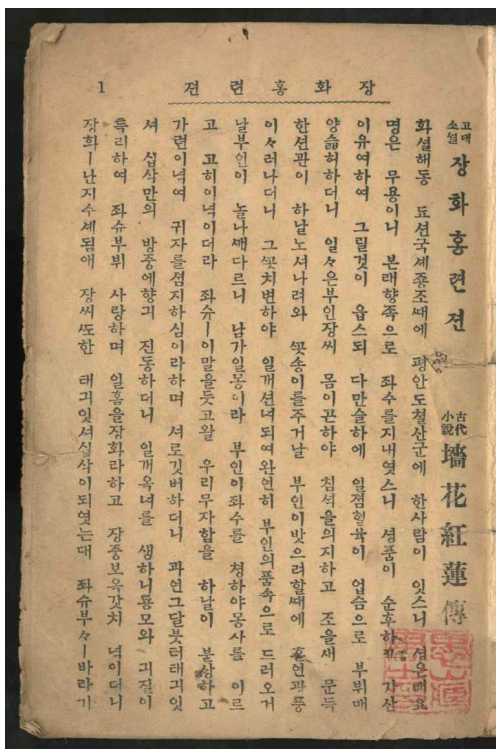 장화홍련젼
1
고대소설 장화홍련젼 古代小說 墻花紅蓮傳
화셜해동 됴션국셰죵조때에 평안도철산군에 한사람이 잇스니 셩은배요
명은 무용이니 본래향죡으로 좌수를지내엿스니 셩품이 순후하고 가산
이유여하여 그릴것이 읍스되 다만슬하에 일졈혈육이 업슴으로 부뷔매
양슬허하더니 일々은부인장씨 몸이곤하야 침셕을의지하고 조을새 문득
한션관이 하날노셔나려와 꼿송이를주거날 부인이밧으려할때에 홀연광풍
이々러나더니 그꼿치변하야 일개션녀되여완연히 부인의품속으로 드러오거
날부인이 놀나깨다르니 남가일몽이라 부인이좌수를 쳥하야몽사를 이르
고 고히이녁이더라 좌슈ㅣ이말을듯고왈 우리무자함을 하날이 불상하고
가련이녁여 귀자를졈지하심이라하며 셔로깃버하더니 과연그달붓터태긔잇
셔 십삭만의 방중에향긔 진동하더니 일개옥녀를 생하니룡모와 긔질이
특리하여 좌슈부뷔 사랑하며 일홈을장화라하고 장중보옥갓치 녁이더니
장화ㅣ난지수셰됨애 장씨또한 태긔잇셔십삭이되엿는대 좌슈부々ㅣ바라기